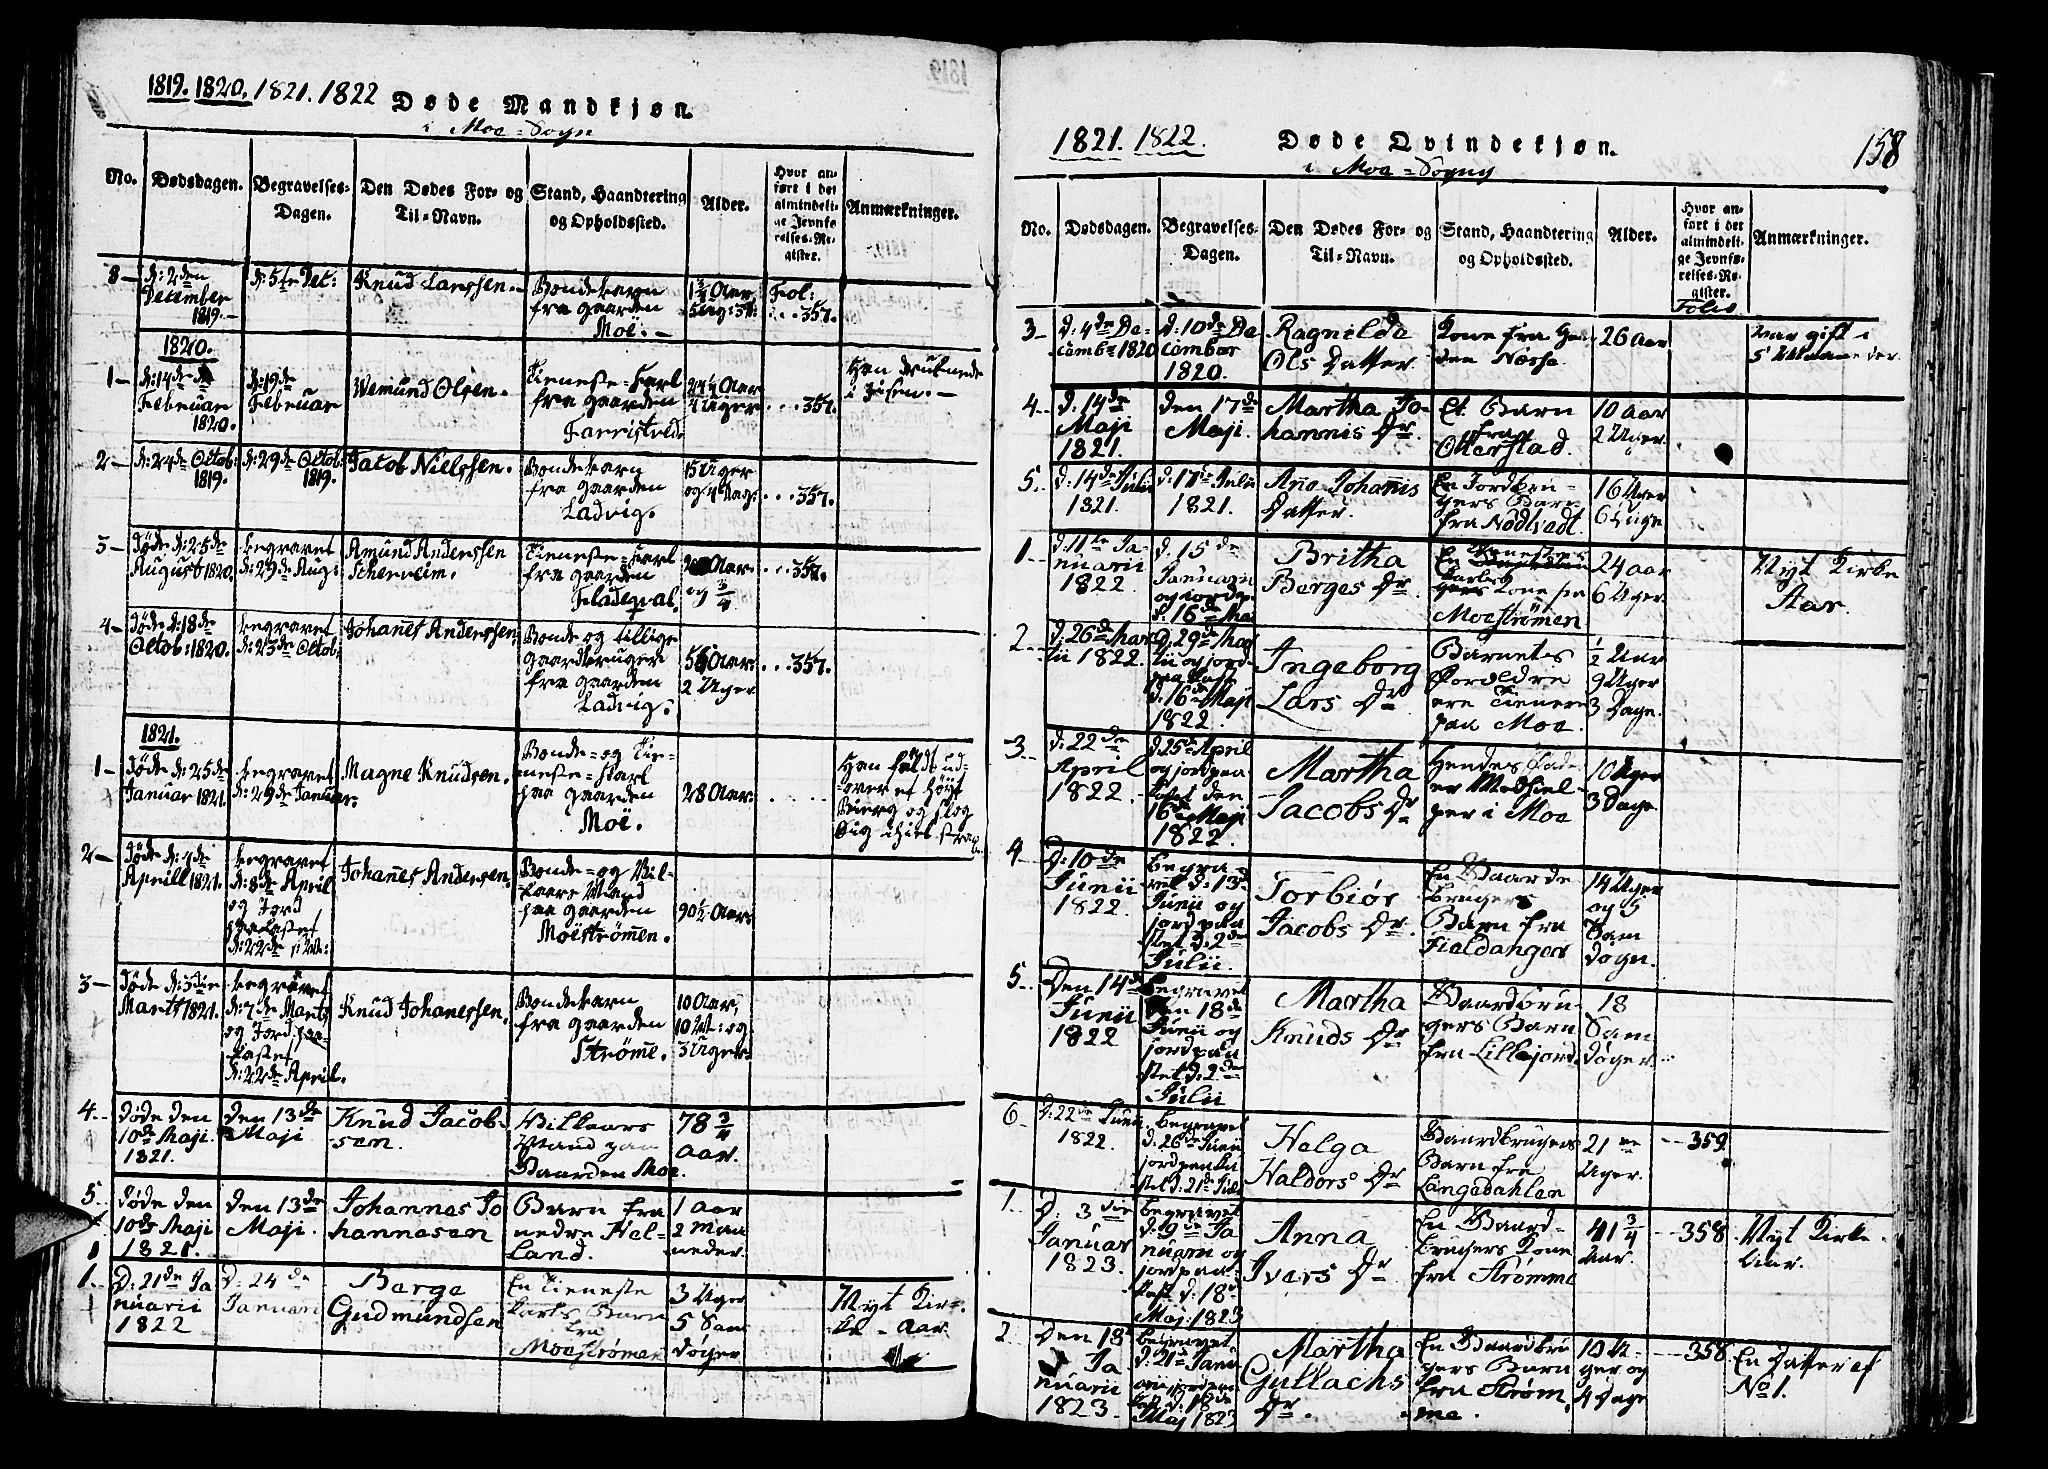 1819. 1820. 1821. 1822
Døde Mandkjøn.
i Moe=Sogn
No.
Dødsdagen.
Begravelses-
Dagen.
Den Dødes For= og
Til=Navn.
Stand, Haandtering
og Opholdssted.
Alder.
Hvor an-
ført i det
almindeli-
ge Jevnfø-
relses-Re-
gister.
Anmærkninger.
8-
d: 2den
December
1819.
d: 5te Dec:
Knud Larssen.
Bondebarn
fra gaarden
Moë.
1 3/4 Aar
Fol:
...357.
1820.
1-
d: 14de
Februar
1820.
d: 19de
Februar
Wemund Olsen.
Tieneste=Karl
fra gaarden
Farristved.
24 1/2 Aar
4 Uger
...357.
Han druknede
i Elven.
2-
d: 24de Octob:
1819.
d: 29de Octob:
1819.
Jacob Nielssen.
Bondebarn
fra gaarden
Ladvig.
15 Uger
og 4 Dag:
...357.
3-
Døde d: 25de
August 1820.
begravet
d: 29de Aug:
Amund Anderssen
Scherveim.
Tieneste=Karl
fra gaarden
Fladeqval.
Aar
og 3/4
...357.
4-
Døde d: 18de
Octob: 1820.
begravet
d: 23de Octob:
Johannes Anderssen.
Bonde og tillige
gaardbruger
fra gaarden
Ladvig.
56 Aar
2 Uger
...357.
1821.
1-
Døde d: 25de
Januar 1821.
begravet
d: 29de Januar.
Magne Knudsen.
Bonde= og Tie-
neste=Karl
paa gaarden
Moë.
28 Aar.
Han faldt ud-
over et høyt
Bierg og slog
Sig ihiel strax.
2-
Døde d: 4de
Aprill 1821.
begravet
d: 8de April
og Jord
paakastet
d: 22de
Johannes Andersen.
Bonde= og Vil-
kaars Mand
paa gaarden
Moëströmen.
90 1/2 Aar.
3-
Døde d: 3die
Marts 1821.
begravet
d: 7de Marts
og Jord paa-
kastet
d: 22de April.
Knud Johanessen.
Bondebarn
fra gaarden
Strøme.
10 Aar,
10 M: og
3 Uger.
4.
Døde den
10de Maji
1821.
den 13de
Maji
Knud Jacob-
sen.
Vilkaars
Mand paa
Gaarden Moe.
78 3/4
Aar.
5.
Døde den
10de Maji
1821.
den 13de
Maji.
Johannes Jo
hannesen
Barn fra
nedre Hel-
land.
1 Aar
2 Maa
neder.
1.
D: 21de Ja
nuarii
1822
D: 24de
Januari
Børge
Gudmundsen
En Tieneste
Karls Barn
fra
Moeströmen
3 Uger
5 Sam
døger
Nyt Kir-
ke-Aar.
1821. 1822.
Døde Qvindekjøn.
i Moe=Sogn
158
No.
Dødsdagen.
Begravelses-
Dagen.
Den Dødes For= og
Til=Navn.
Stand, Haandtering
og Opholdssted.
Alder.
Hvor an-
ført i det
almindeli-
ge Jevnfø-
relses-Re-
gister.
Folio
Anmærkninger.
3-
D: 4de De
cembr 1820
D: 10de De
cember
1820.
Ragnilda
Ols Datter.
Kone fra Gaa
den Næsse
26 Aar
Var gift i
5 Maaneder.
4.
D: 14de
Maji
1821.
den 17de
Maji.
Martha Jo-
hannis Dr.
Et Barn
fra
Otterstad.
10 Aar
2 Uger.
5.
D: 14de Julii
1821.
D: 17de Julii
1821.
Ana Johanis
Datter.
En Jordbru-
gers Barn
fra Nødtvedt.
16 Uger
1-
D: 11te Ja-
nuarii
1822
D. 15de
Januarii
og jordp
d. 16de Mai
Britha
Børges Dr.
En
Karls
Kone fra
Moeströmen
24 Aar
6 Uger.
Nyt Kirke
Aar.
2.
D: 26de Mar
tii 1822.
D. 29de Mar
tii og jord-
paakast
D. 16de Maji
1822.
Ingeborg
Lars Dr
Barnets
Forældre
ere Tienere
paa Moe
1/2 Aar
9 Uger
3 Dage.
3.
D: 22de
April
1822.
D. 25de April
og jordpaa-
kastet den
16de Maji
1822.
Martha
Jacobs Dr
Hendes Fader
er Medhiel-
per i Moe
10 Uger
3 Dage.
4.
D: 10de
Junii
1822.
begra-
vet D: 13d
Junii og
jordpaaka
stet D: 2de
Julii.
Torbiør
Jacobs Dr.
En Gaard-
brugers
Barn fra
Fieldanger
14 Uger
og 5
Sam
døgn.
5.
Den 14de
Junii
1822
begravet
den 18de
Junii og
jordpaaka
stet d: 2de
Julii
Martha
Knuds Dr
Gaardbru-
gers Barn
fra Lillejord.
18
Sam
døger.
6.
D: 22de Junii
1822.
begravet
D. 26de Junii
jordpaaka
stet d: 21de Juli
Helga
Haldors Dr
Gaardbrugers
Barn fra
Langedahlen
21 ne
Uger.
--359
1.
D: 3die
Januar
1823.
begravet
D. 9de Ja
nuarii og
jordpaa-
kast d: 18de
Maj: 1823
Anna
Ivers Dr
En Gaard-
brugers Kone
fra Strømme
41 3/4
Aar.
--358
Nyt Kirke-
Aar.
2
Den 18de
Ja
nuarii
1823.
begravet
D. 21de Janu
arii jordpaa
kast d. 18de
Maj 1823
Martha
Gullachs
Dr.
En Gaardbru
gers Barn
fra Strøm
me.
10 U-
ger og
4 Dage
--358
En Datter af
No 1.